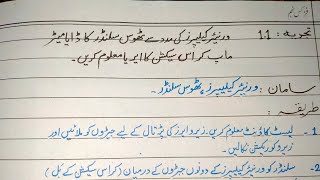 فزکس نہم
تجربہ : 1.1 ورنیئر کیلیپرز کی مدد سے ٹھوس سلنڈر کا ڈایا میٹر
ماپ کر اس سیکشن کا ایریا معلوم کریں۔
سامان : ورنیئر کیلیپرز ، ٹھوس سلنڈر۔
طریقہ :
1- لیسٹ کاؤنٹ معلوم کریں۔ زیرو ایرر کی پڑتال کے لیے جبڑوں کو ملائیں اور
زیرو کوریکشن نکالیں۔
2- سلنڈر کو ورنیئر کیلیپرز کے دونوں جبڑوں کے درمیان (کراس سیکشن کے بل)